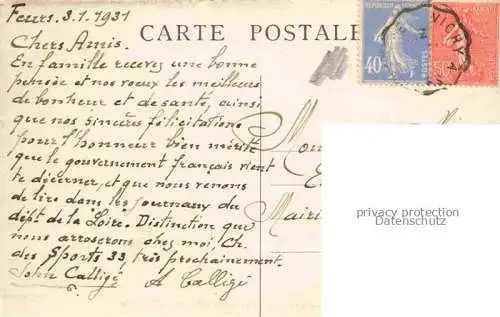 Feurs. 3.1.1931
CARTE POSTALE
Chers Amis.
En famille recevez une bonne
pensée et nos voeux les meilleurs
de bonheur et de santé, ainsi
que nos sincères félicitations
pour l'honneur bien mérité
que le gouvernement français vient
te décerner, et que nous venons
de lire dans les journaux du
dépt de la Loire. Distinction que
nous arroserons chez moi, Ch.
des Sports 33 très prochainement.
John Calligé A Calligé
REPUBLIQUE FRANÇAISE
40c
POSTES
VICHY
Mairi
privacy protection
Datenschutz